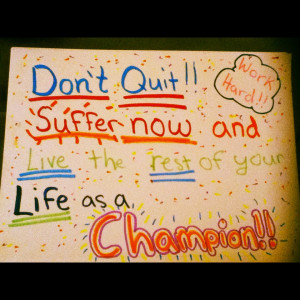 Don't Quit!!
Work
Hard!!
Suffer now and
Live the rest of your
Life as a
Champion!!